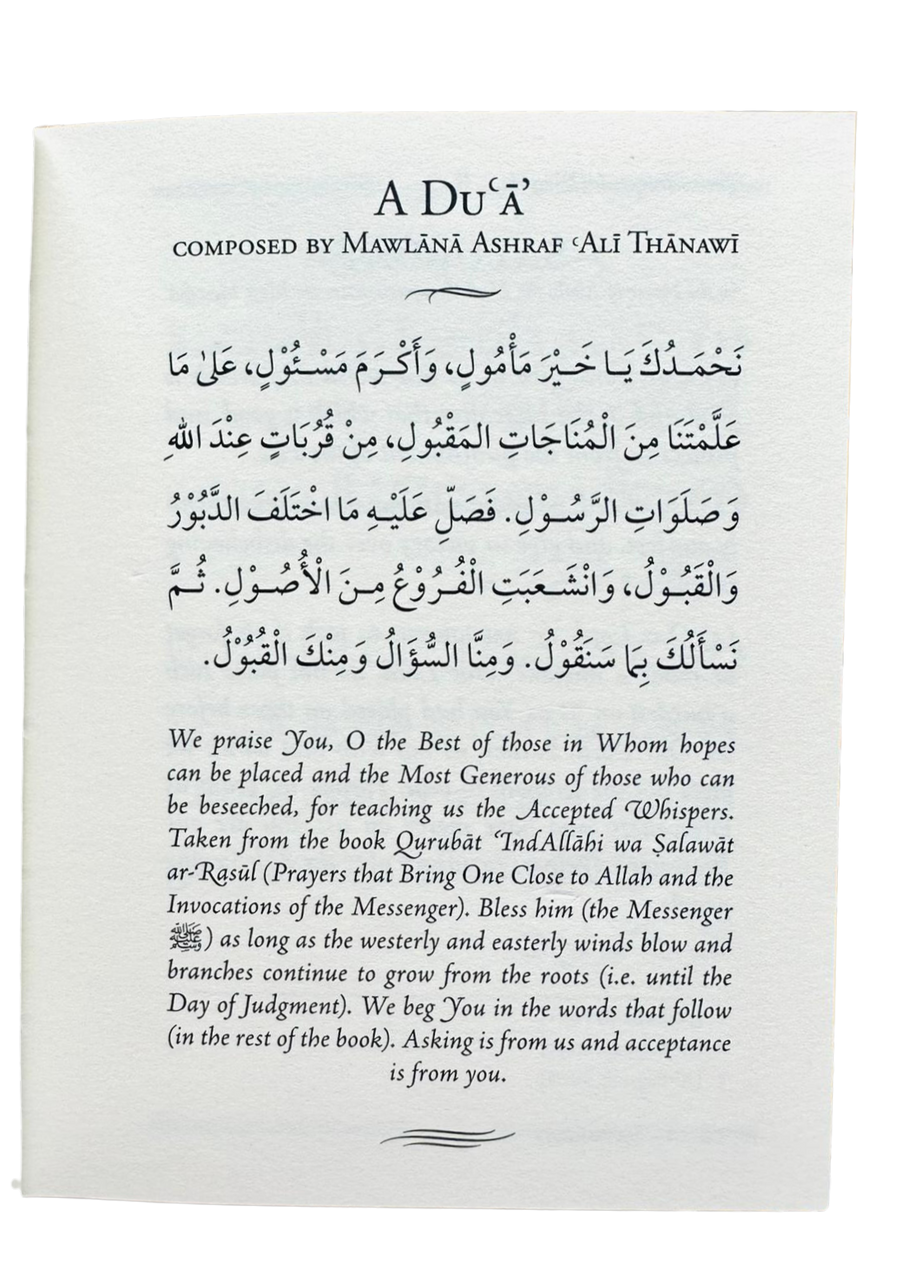 A Duʿāʾ
composed by Mawlānā Ashraf ʿAlī Thānawī
نَحْمَدُكَ يَا خَيْرَ مَأْمُولٍ، وَأَكْرَمَ مَسْئُوْلٍ، عَلىٰ مَا
عَلَّمْتَنَا مِنَ الْمُنَاجَاتِ المَقْبُولِ، مِنْ قُرُبَاتٍ عِنْدَ اللهِ
وَصَلَوَاتِ الرَّسُوْلِ. فَصَلِّ عَلَيْهِ مَا اخْتَلَفَ الدَّبُوْرُ
وَالْقَبُوْلُ، وَانْشَعَبَتِ الْفُرُوْعُ مِنَ الْأُصُوْلِ. ثُمَّ
نَسْأَلُكَ بِمَا سَنَقُوْلُ. وَمِنَّا السُّؤَالُ وَمِنْكَ الْقُبُوْلُ.
We praise You, O the Best of those in Whom hopes
can be placed and the Most Generous of those who can
be beseeched, for teaching us the Accepted Whispers.
Taken from the book Qurubāt ʿIndAllāhi wa Ṣalawāt
ar-Rasūl (Prayers that Bring One Close to Allah and the
Invocations of the Messenger). Bless him (the Messenger
ﷺ) as long as the westerly and easterly winds blow and
branches continue to grow from the roots (i.e. until the
Day of Judgment). We beg You in the words that follow
(in the rest of the book). Asking is from us and acceptance
is from you.